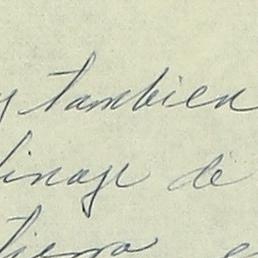 y tambien
linaje de
tierra e